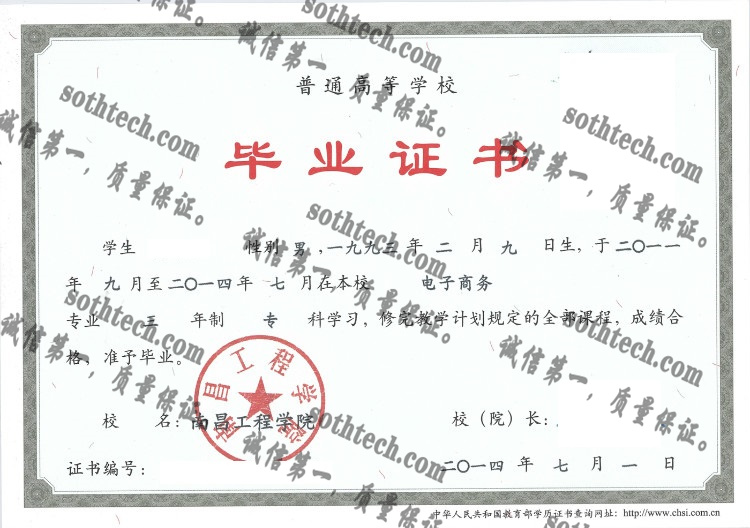 普通高等学校
毕业证书
学生 性别 男 ,一九九三 年 二 月 九 日生，于二〇一一
年 九 月至二〇一四年 七 月在本校 电子商务
专业 三 年制 专 科学习，修完教学计划规定的全部课程，成绩合
格，准予毕业。
校 名：南昌工程学院
校（院）长：
证书编号：
二〇一四 年 七 月 一 日
中华人民共和国教育部学历证书查询网址：http://www.chsi.com.cn
南昌工程学院
sothtech.com
诚信第一，质量保证。
sothtech.com
诚信第一，质量保证。
sothtech.com
诚信第一，质量保证。
sothtech.com
诚信第一，质量保证。
sothtech.com
诚信第一，质量保证。
sothtech.com
诚信第一，质量保证。
sothtech.com
诚信第一，质量保证。
sothtech.com